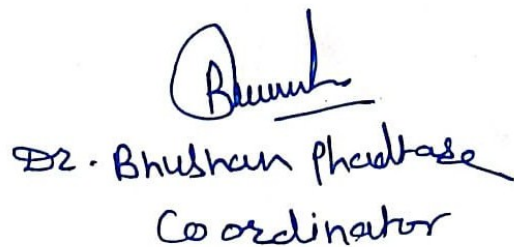 Dr. Bhushan Phadtare
Coordinator